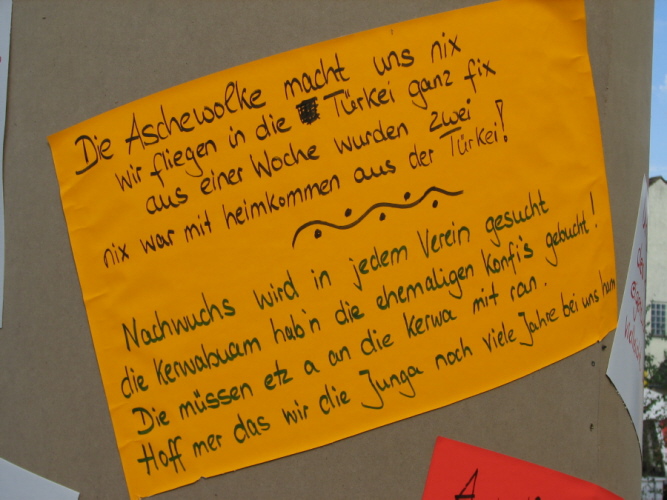 Die Aschewolke macht uns nix
wir fliegen in die Türkei ganz fix
aus einer Woche wurden zwei
nix war mit heimkommen aus der Türkei!
Nachwuchs wird in jedem Verein gesucht
die Kerwabuam hab'n die ehemaligen Konfi's gebucht!
Die müssen etz a an die Kerwa mit ran.
Hoff mer das wir die Junga noch viele Jahre bei uns ham